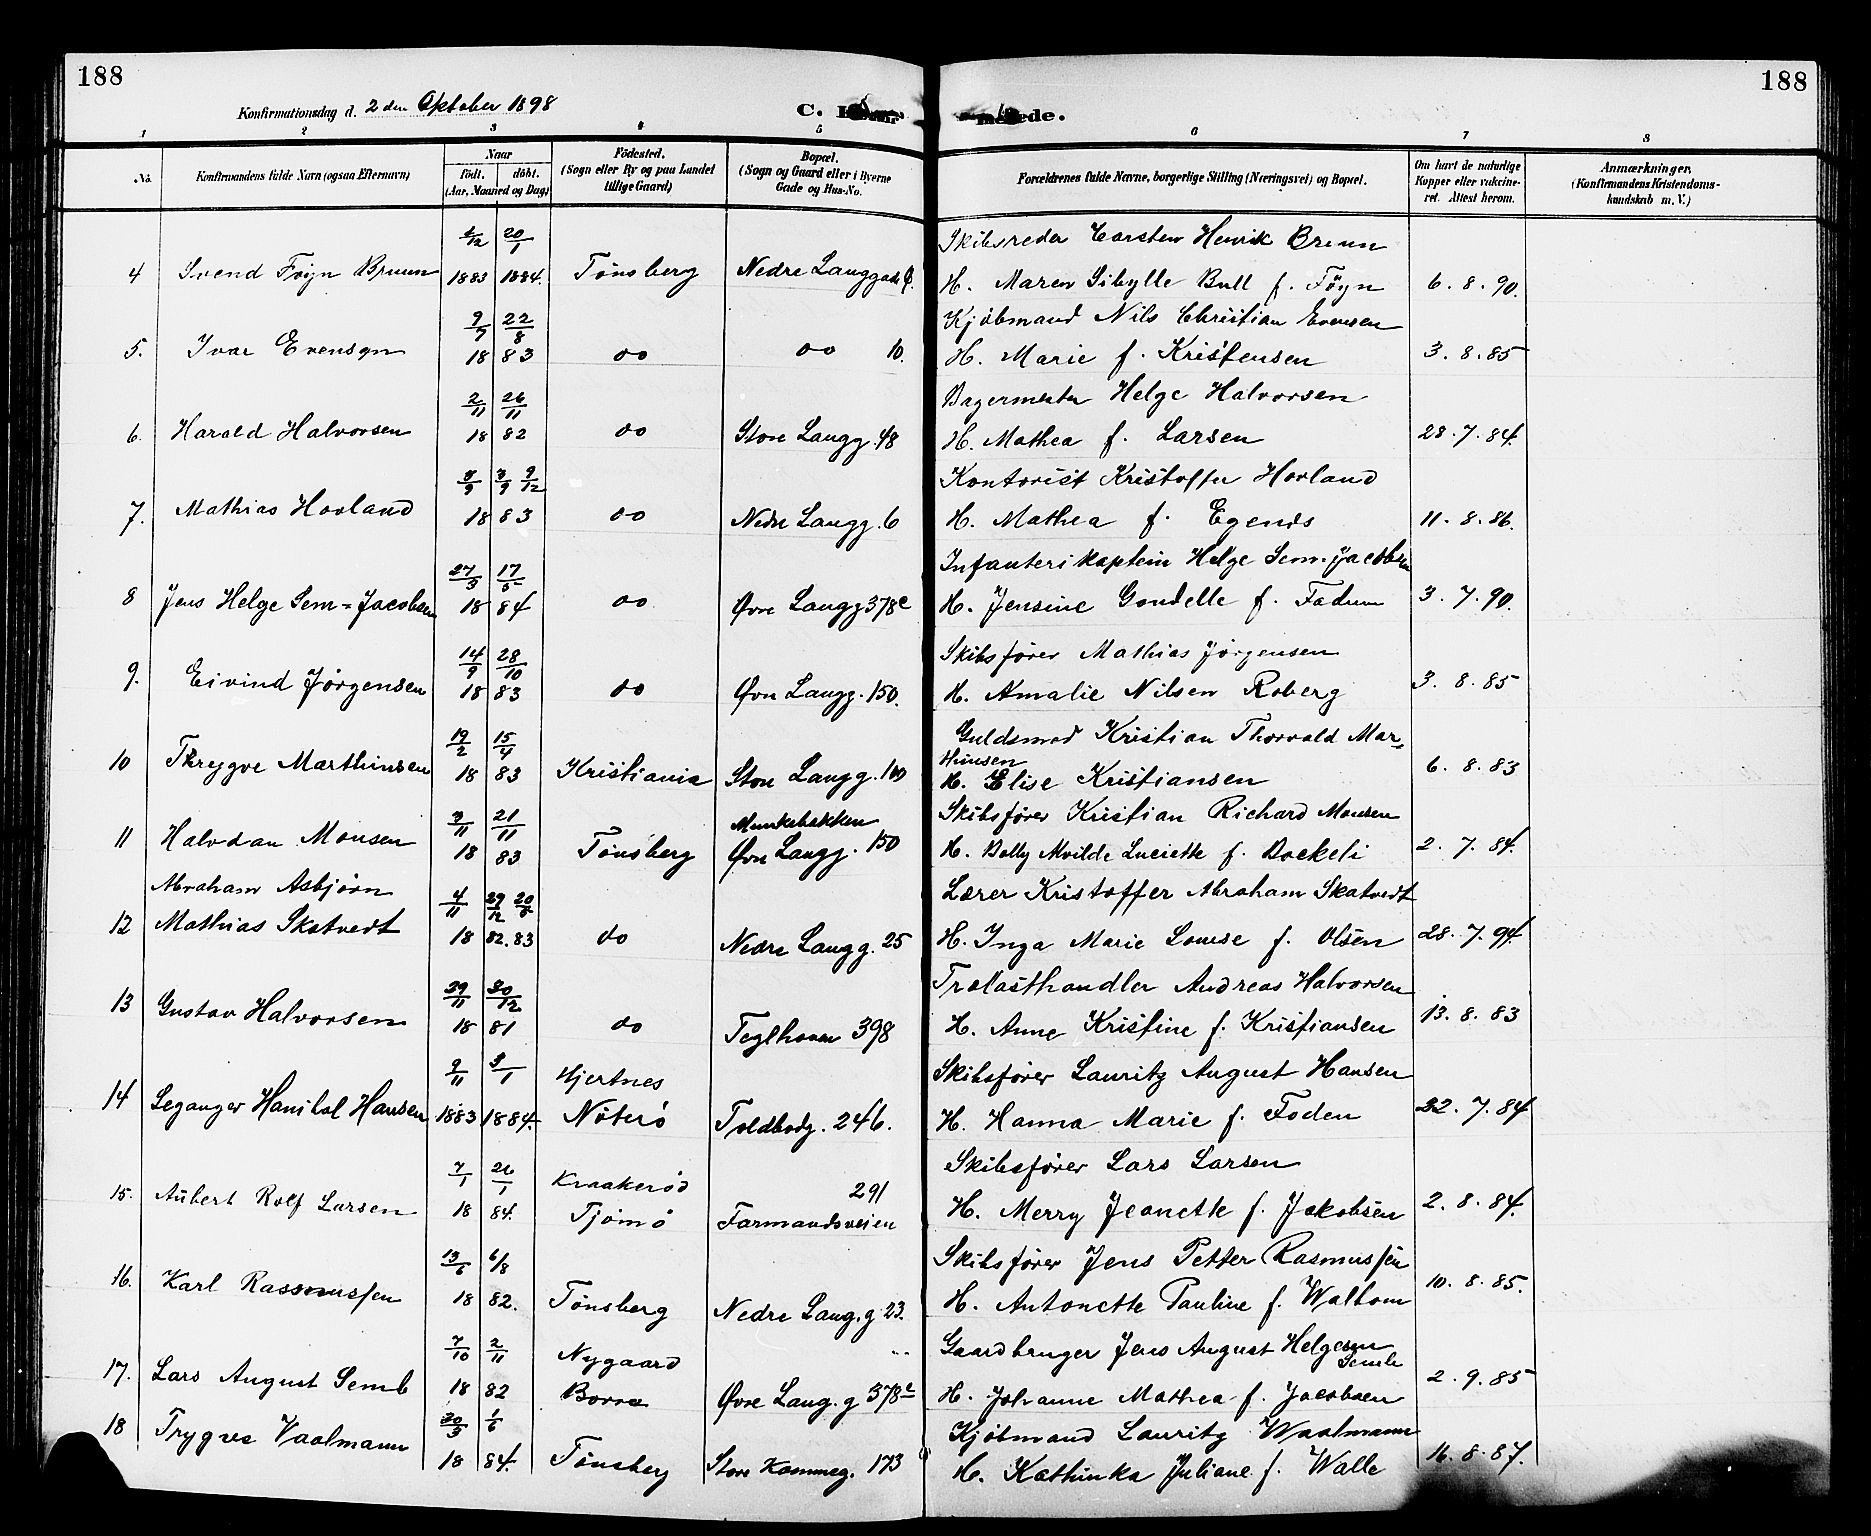 188
188
Konfirmationsdag d. 2 den Oktober 1898
C.
de.
1 2 3 4 5 6 7 8
No.
Konfirmandens fulde Navn (ogsaa Efternavn)
Naar
födt. döbt.
(Aar, Maaned og Dag)
Födested.
(Sogn eller By og paa Landet
tillige Gaard)
Bopæl.
(Sogn og Gaard eller i Byerne
Gade og Hus-No.
Forældrenes fulde Navne, borgerlige Stilling (Næringsvei) og Bopæl.
Om havt de naturlige
Kopper eller vakcine-
ret. Attest herom.
Anmærkninger.
(Konfirmandens Kristendoms-
kundskab m. V.)
20/1 Skibsreder Carsten Henrik Bruun
4 Svend Foyn Bruun 1883 1884. Tönsberg Nedre Langgade H. Maren Sibylle Bull f. Föyn 6. 8. 90.
9/7 22/8 Kjöbmand Nils Christian Evensen
5. Ivar Evensen 18 83 do do 10. H. Marie f. Kristensen 3. 8. 85
2/11 26/11 Bagermester Helge Halvorsen
6. Harald Halvorsen 18 82 do Store Langg. 48 H. Mathea f. Larsen 28. 7. 84.
3/9 9/12 Kontorist Kristoffer Hovland
7. Mathias Hovland 18 83 do Nedre Langg. 6 H. Mathea f. Egends 11. 8. 86.
27/3 17/5 Infanterikaptein Helge Sem-Jacobsen
8 Jens Helge Sem=Jacobsen 18 84 do Øvre Langg 378c H. Jensine Gondelle f. Fadum 3. 7. 90.
14/9 28/10 Skibsfører Mathias Jörgensen
9. Eivind Jörgensen 18 83 do Øvre Langg. 150. H. Amalie Nilsen Roberg 3. 8. 85
19/2 15/4 Guldsmed Kristian Thorvald Mar-
thinsen
10 Thrygve Marthinsen 18 83 Kristiania Store Langg. 100 H. Elise Kristiansen 6. 8. 83
3/11 21/11 Munkebakken Skibsfører Kristian Richard Monsen
11 Halvdan Monsen 18 83 Tönsberg Øvre Langg. 150 H. Bolly f. 2. 7. 84.
Abraham Asbjørn 4/11 29/12 20/5 Lærer Kristoffer Abraham Skatvedt
12 Mathias Skatvedt 18 82. 83 do Nedre Langg. 25 H. Inga Marie Louise f. Olsen 28. 7. 94.
29/11 30/12 Trælasthandler Andreas Halvorsen
13 Gustav Halvorsen 18 81 do Teglhaven 398 H. Anne Kristine f. Kristiansen 13. 8. 83
9/11 3/1 Hjertnes Skibsfører Lauritz August Hansen
14 Leganger Hanibal Hansen 1883 1884. Nöterö Toldbodg. 246. H. Hanna Marie f. Foden 22. 7. 84
7/1 26/1 Kraakerød 291 Skibsfører Lars Larsen
15. Aubert Rolf Larsen 18 84. Tjömö Farmandsveien H. Merry Jeanette f. Jakobsen 2. 8. 84.
13/6 6/8 Skibsfører Jens Petter Rasmussen
16. Karl Rassmussen 18 82. Tönsberg Nedre Lang.g 23. H. Antonette Pauline f. Walbom 10. 8. 85.
7/10 2/11 Nygaard Gaardbruger Jens August Helgesen
Semb
17. Lars August Semb 18 82 Borre Øvre Lang.g 378c H. Johanne Mathea f. Jacobsen 2. 9. 85
30/3 1/6 Kjöbmand Lauritz Waalmann
18 Trygve Vaalmann 18 84. Tönsberg Store Kammeg. 173 H. Kathinka Juliane f. Walle 16. 8. 87.